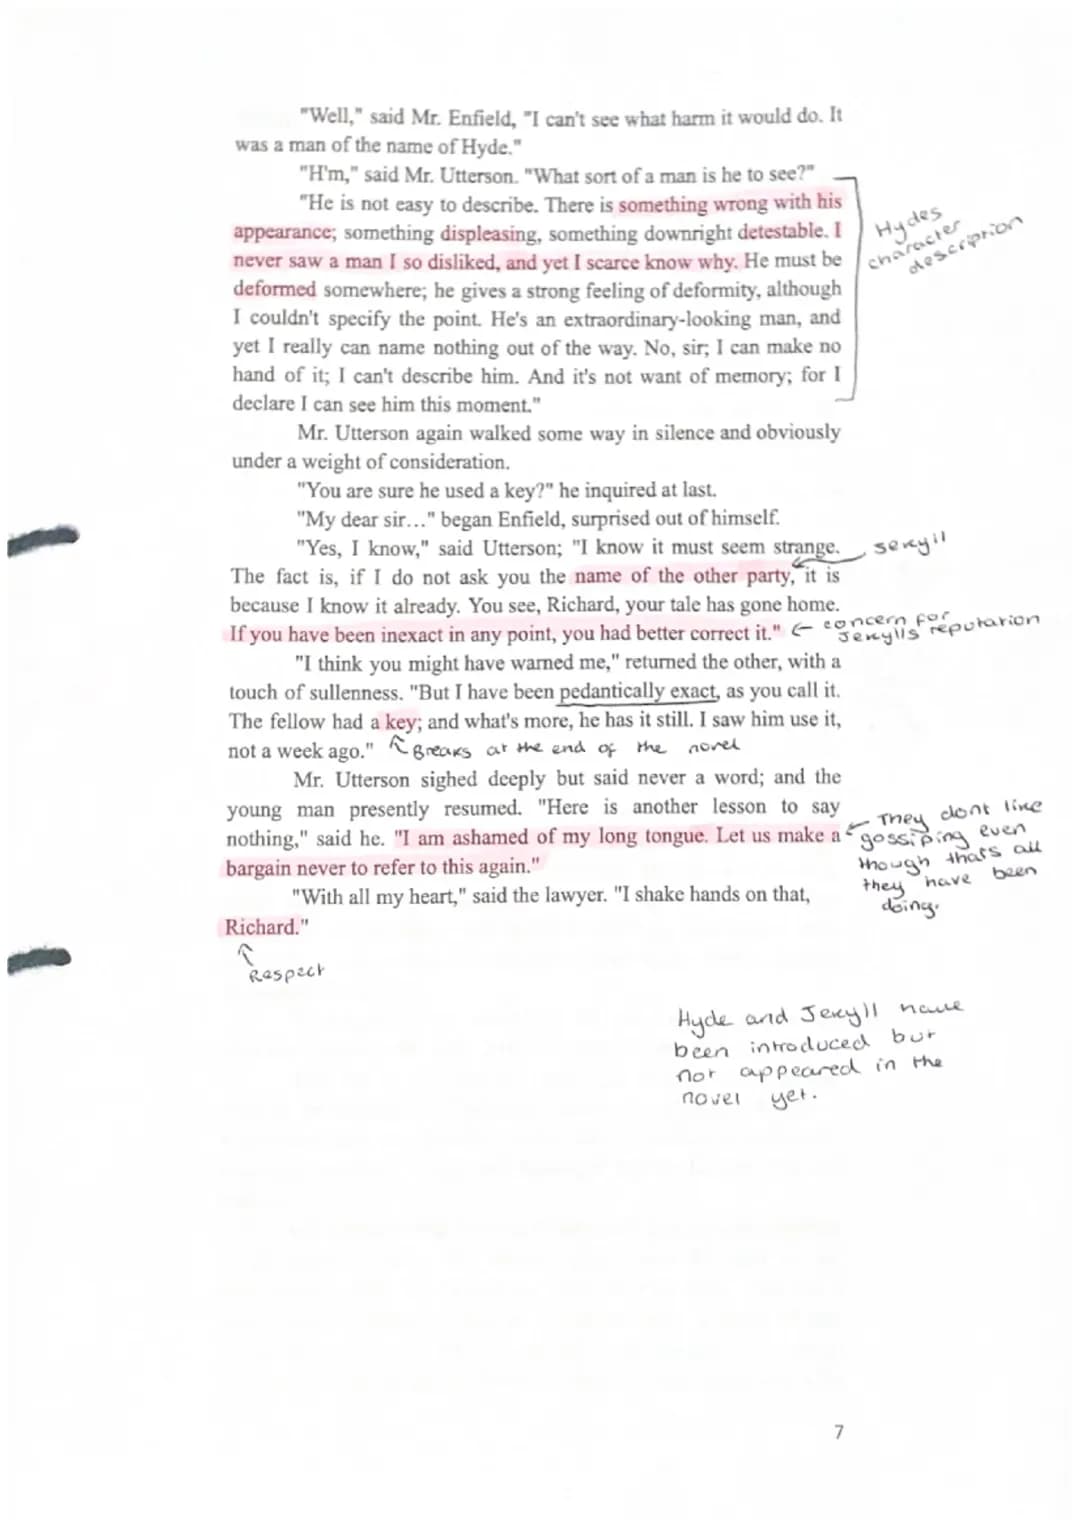 "Well," said Mr. Enfield, "I can't see what harm it would do. It
was a man of the name of Hyde."
"H'm," said Mr. Utterson. "What sort of a man is he to see?"
"He is not easy to describe. There is something wrong with his
appearance; something displeasing, something downright detestable. I
never saw a man I so disliked, and yet I scarce know why. He must be
deformed somewhere; he gives a strong feeling of deformity, although
I couldn't specify the point. He's an extraordinary-looking man, and
yet I really can name nothing out of the way. No, sir; I can make no
hand of it; I can't describe him. And it's not want of memory; for I
declare I can see him this moment."
Hydes
character
description
Mr. Utterson again walked some way in silence and obviously
under a weight of consideration.
"You are sure he used a key?" he inquired at last.
"My dear sir..." began Enfield, surprised out of himself.
"Yes, I know," said Utterson; "I know it must seem strange.
Jekyll
The fact is, if I do not ask you the name of the other party, it is
because I know it already. You see, Richard, your tale has gone home.
If you have been inexact in any point, you had better correct it."
← concern for
Jekylls reputation
"I think you might have warned me," returned the other, with a
touch of sullenness. "But I have been pedantically exact, as you call it.
The fellow had a key; and what's more, he has it still. I saw him use it,
not a week ago."
Breaks at the end of the novel
Mr. Utterson sighed deeply but said never a word; and the
young man presently resumed. "Here is another lesson to say
nothing," said he. "I am ashamed of my long tongue. Let us make a
bargain never to refer to this again."
← They dont like
gossiping even
though thats all
they have been
doing.
"With all my heart," said the lawyer. "I shake hands on that,
Richard."
↑
Respect
Hyde and Jekyll have
been introduced but
not appeared in the
novel yet.
7